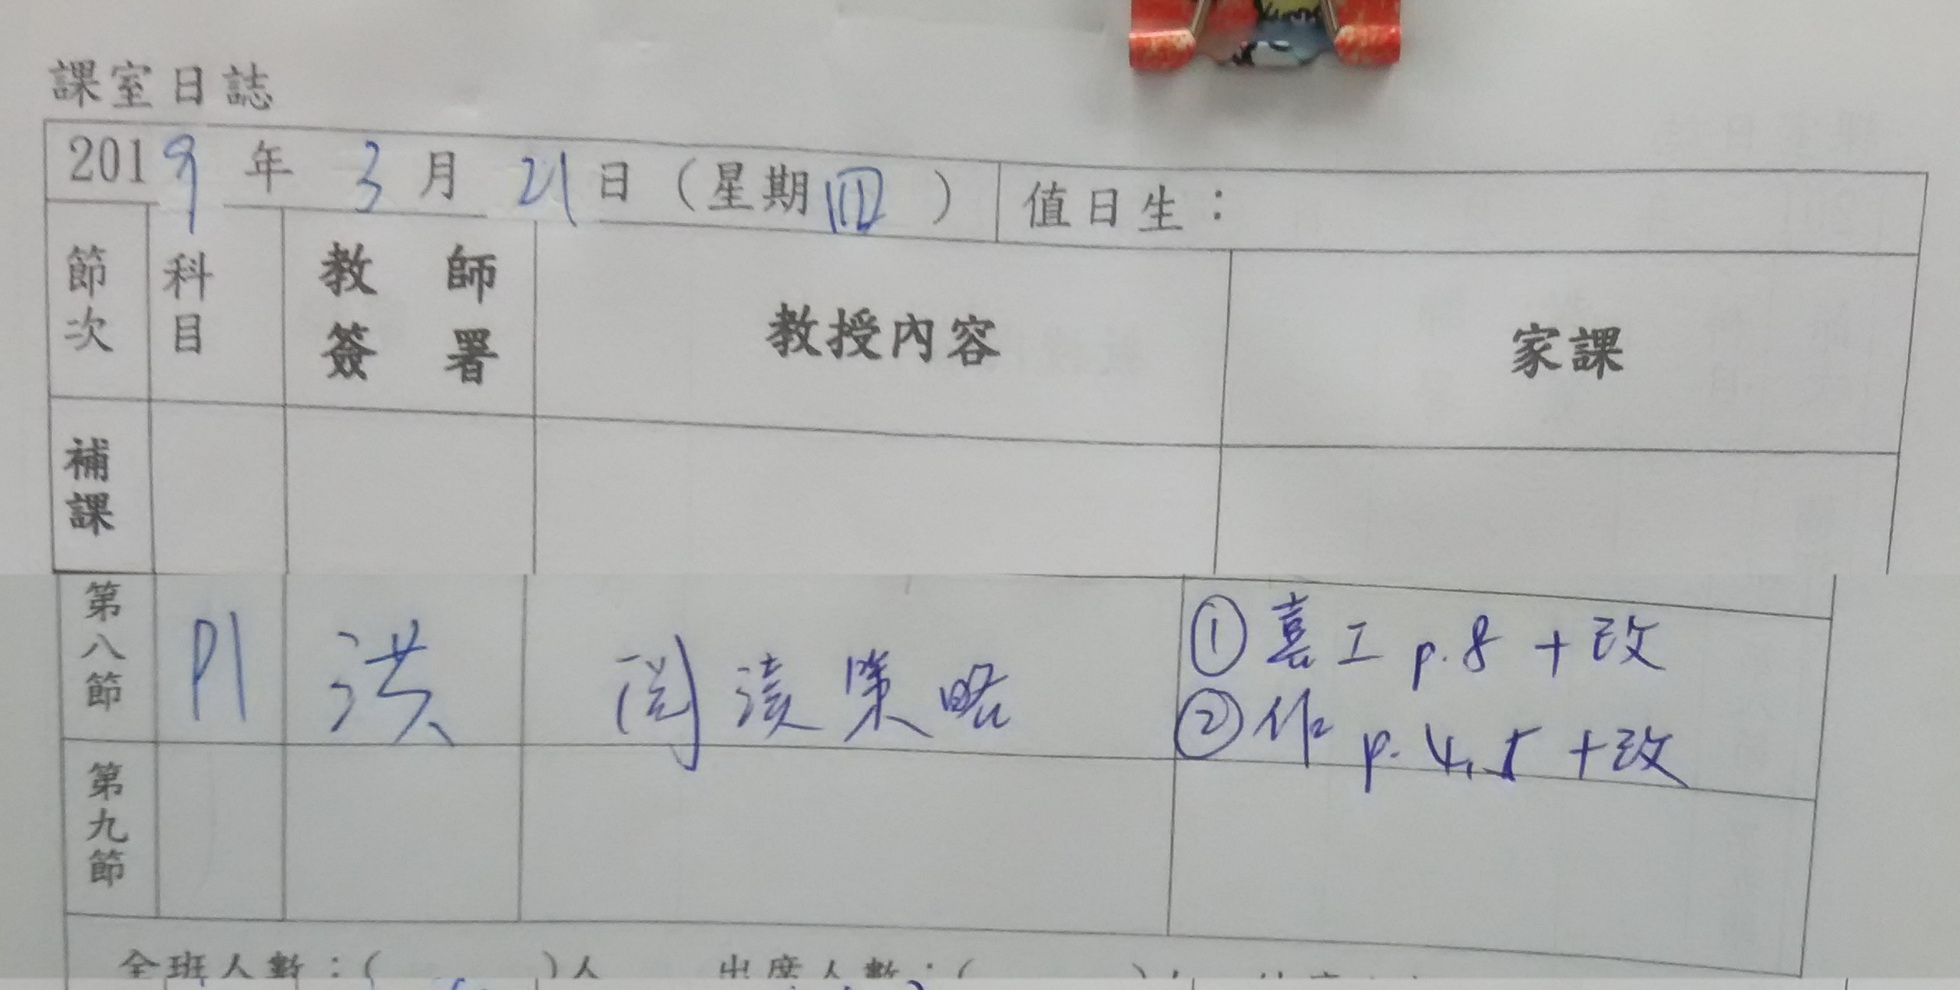 課室日誌
2019年3月21日（星期四）值日生：
節次 科目 教師簽署 教授內容 家課
補課
第八節 P1 洪 閱讀策略 ①喜工 p.8 +改
②作 p.4,5 +改
第九節
全班人數：( )人 出席人數：(